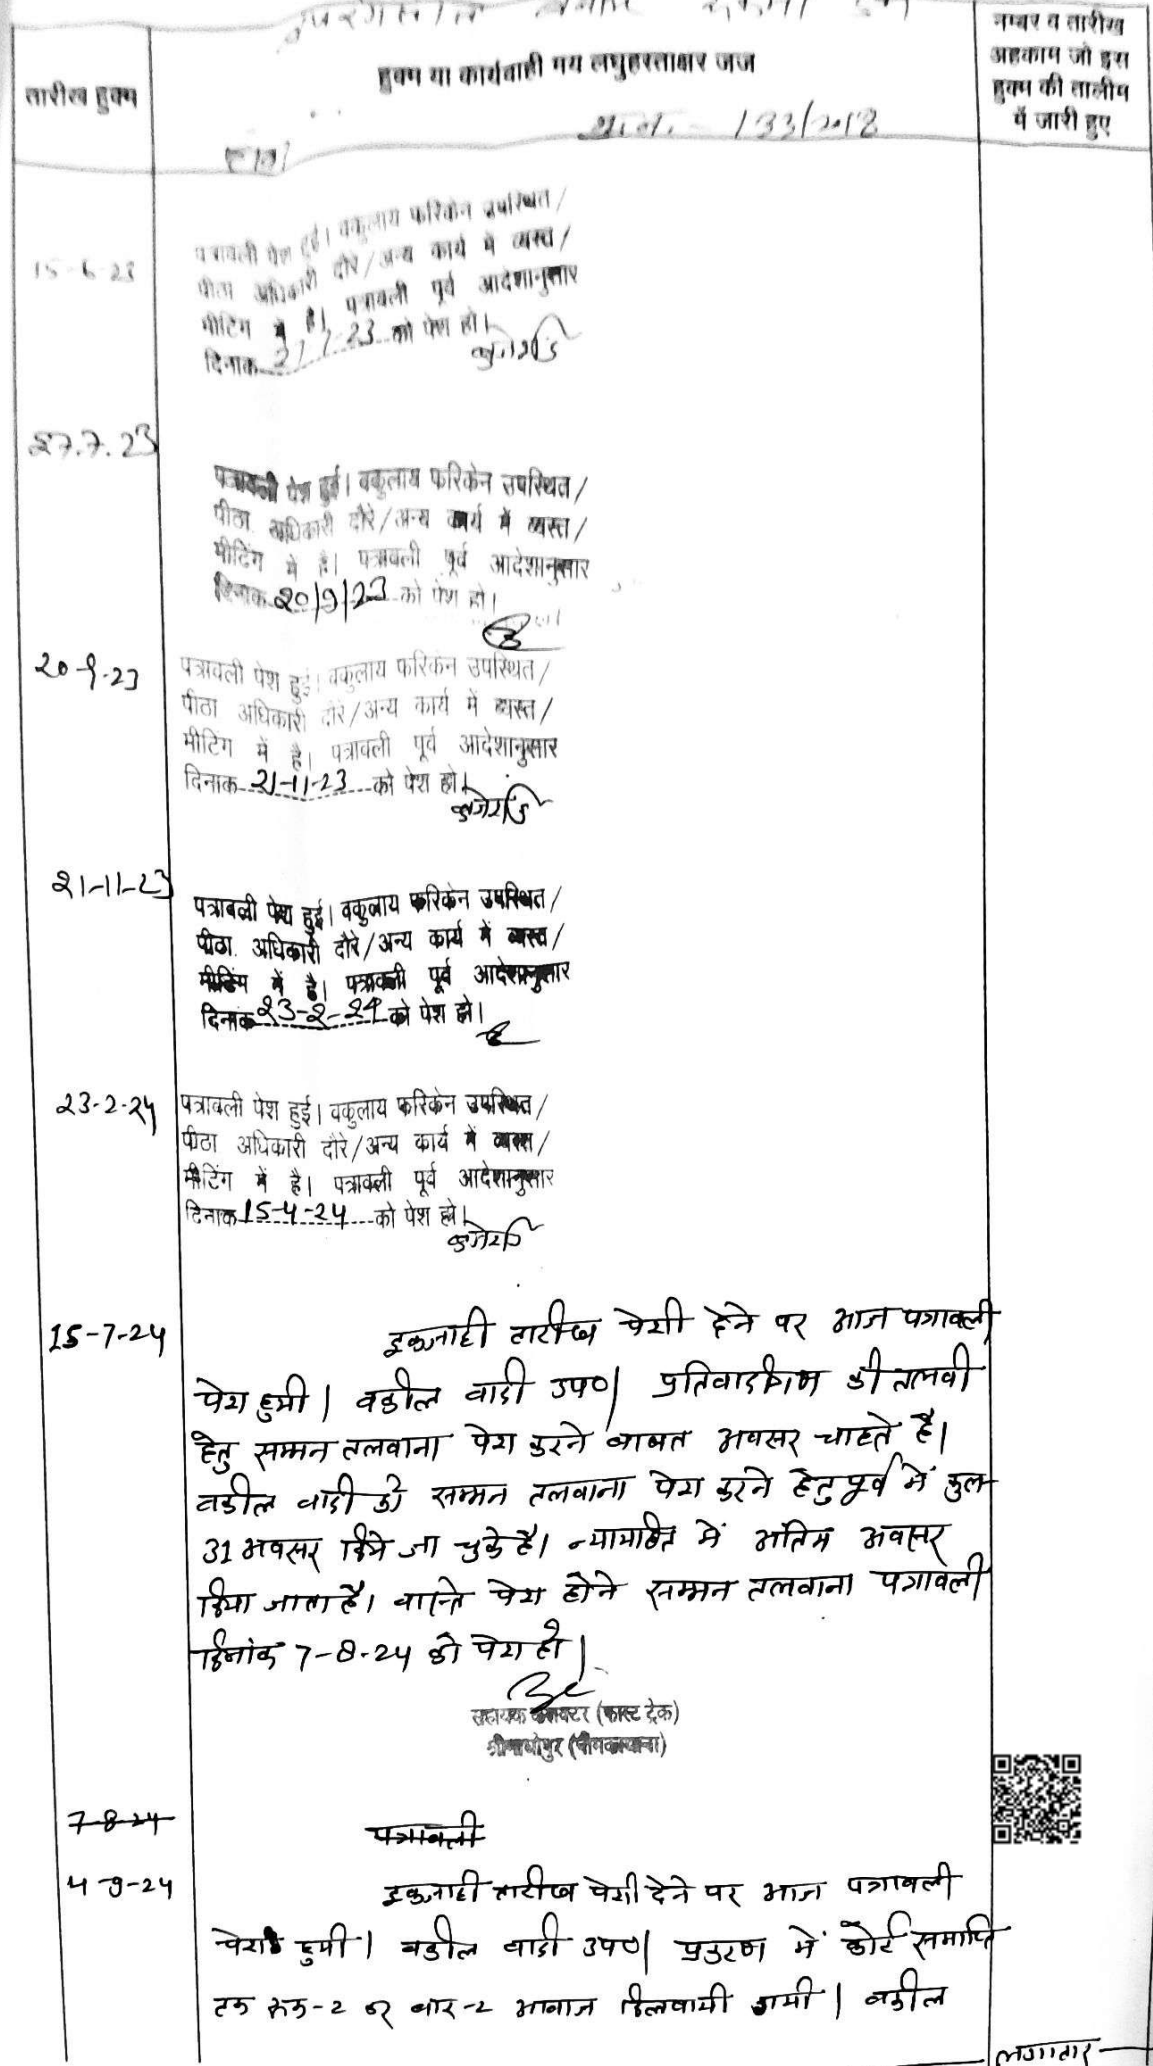 तारीख हुक्म
हुक्म या कार्यवाही मय लघुहस्ताक्षर जज
नम्बर व तारीख
अहकाम जो इस
हुक्म की तालीम
में जारी हुए
133/2018
15-6-23
पत्रावली पेश हुई। वकुलाय फरिकेन उपस्थित/
पीठा अधिकारी दौरे/अन्य कार्य में व्यस्त/
मीटिंग में है। पत्रावली पूर्व आदेशानुसार
दिनाक 27-7-23 को पेश हो।
27.7.23
पत्रावली पेश हुई। वकुलाय फरिकेन उपस्थित/
पीठा. अधिकारी दौरे/अन्य कार्य में व्यस्त/
मीटिंग में है। पत्रावली पूर्व आदेशानुसार
दिनाक 20/9/23 को पेश हो।
20-9-23
पत्रावली पेश हुई। वकुलाय फरिकेन उपस्थित/
पीठा अधिकारी दौरे/अन्य कार्य में व्यस्त/
मीटिंग में है। पत्रावली पूर्व आदेशानुसार
दिनाक 21-11-23 को पेश हो।
21-11-23
पत्रावली पेश हुई। वकुलाय फरिकेन उपस्थित/
पीठा. अधिकारी दौरे/अन्य कार्य में व्यस्त/
मीटिंग में है। पत्रावली पूर्व आदेशानुसार
दिनांक 23-2-24 को पेश हो।
23-2-24
पत्रावली पेश हुई। वकुलाय फरिकेन उपस्थित/
पीठा अधिकारी दौरे/अन्य कार्य में व्यस्त/
मीटिंग में है। पत्रावली पूर्व आदेशानुसार
दिनाक 15-4-24 को पेश हो।
15-7-24
इकजाही तारीख पेशी देने पर आज पत्रावली
पेश हुयी। वकील वादी उप०। प्रतिवादीगण की तलवी
हेतु सम्मन तलवाना पेश करने बाबत अवसर चाहते है।
वकील वादी को सम्मन तलवाना पेश करने हेतु पूर्व में कुल
31 अवसर दिये जा चुके है। न्यायहित में अंतिम अवसर
दिया जाता है। वास्ते पेश होने सम्मन तलवाना पत्रावली
दिनांक 7-8-24 को पेश हो।
सहायक कलक्टर (फास्ट ट्रेक)
श्रीमाधोपुर (नीमकाथाना)
7-8-24
पत्रावली
4-9-24
इकजाही तारीख पेशी देने पर आज पत्रावली
पेश हुयी। वकील वादी उप०। प्रकरण में कोर्ट समाप्ति
तक रूक-2 कर बार-2 आवाज दिलवायी गयी। वकील
लगातार